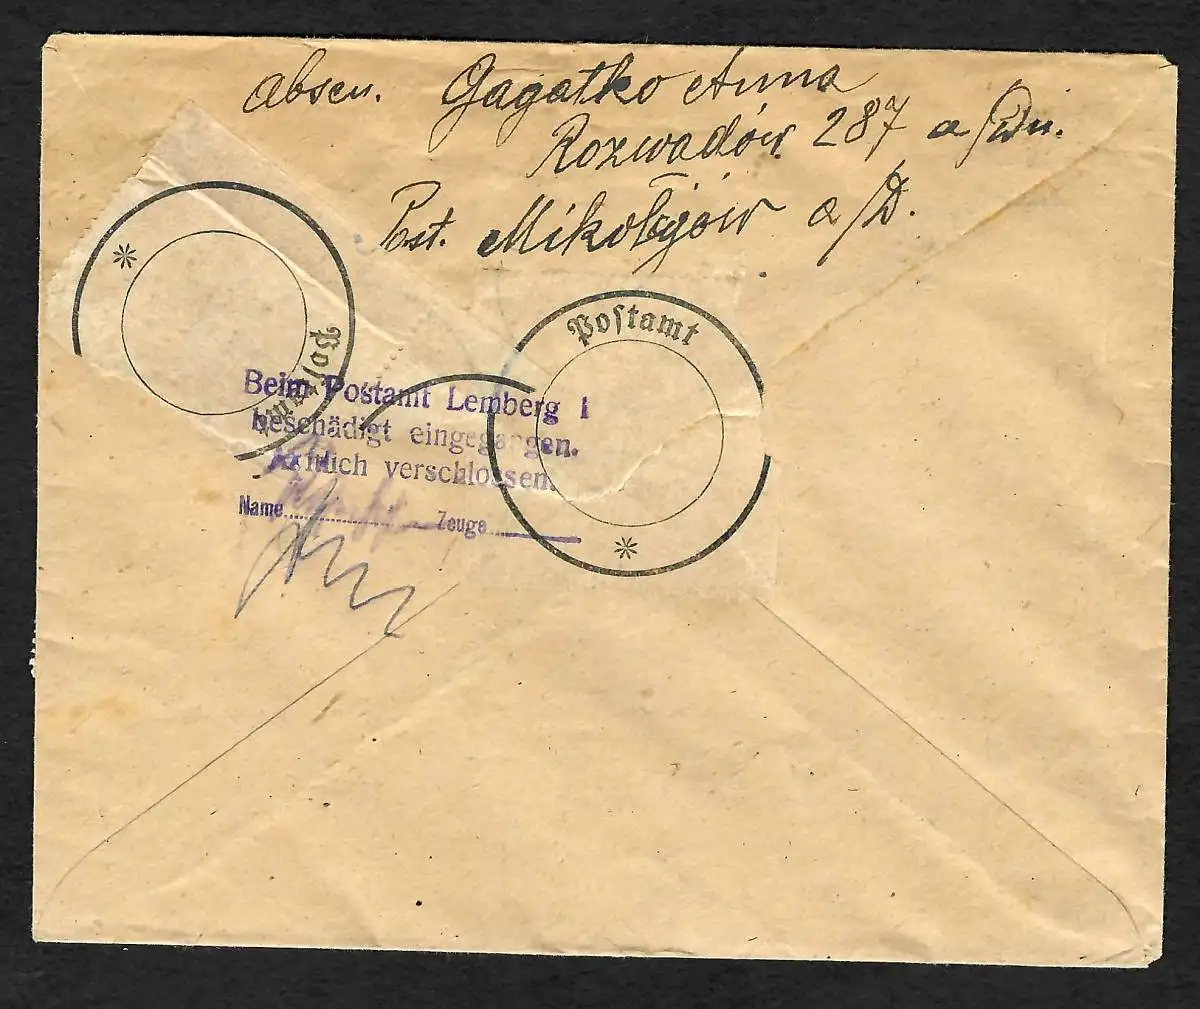 Absen. Gagatko Anna
Rozwadów 287 a/Dn.
Pst. Mikołajów a/D.
Postamt
Postamt
Beim Postamt Lemberg 1
beschädigt eingegangen.
Amtlich verschlossen.
Name.......... Zeuge..........